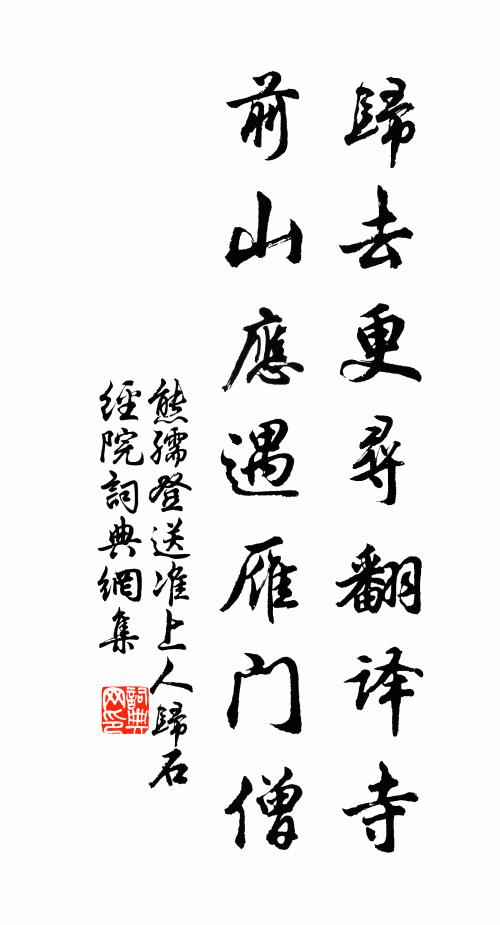 歸去更尋翻译寺
前山應遇雁门僧
熊孺登送准上人歸石
經院詞典網集
詞典
网印